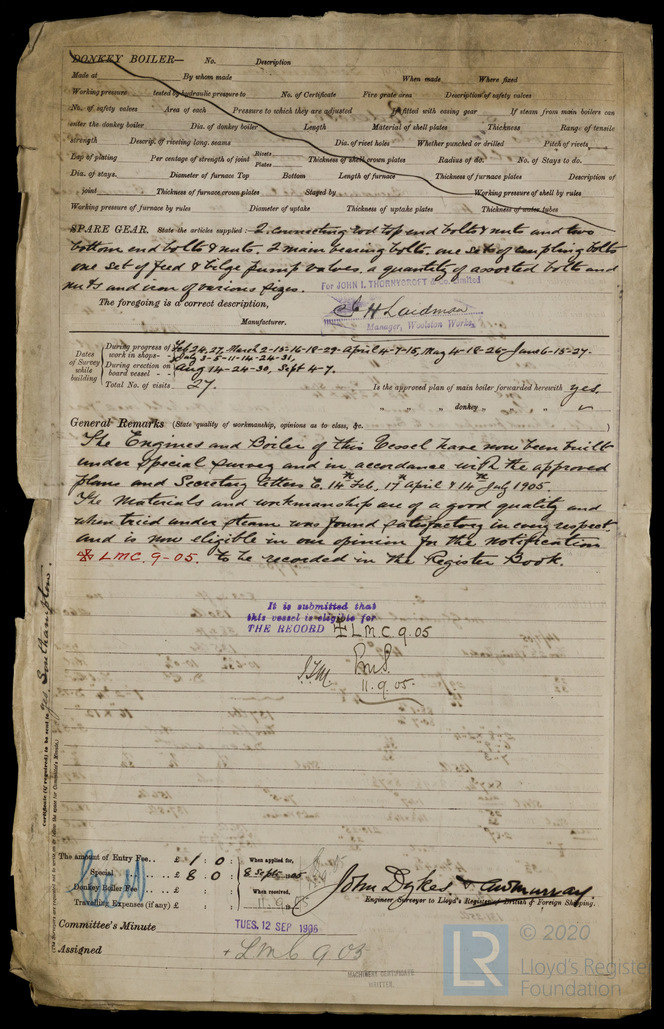 DONKEY BOILER— No. Description
Made at By whom made When made Where fixed
Working pressure tested by hydraulic pressure to No. of Certificate Fire grate area Description of safety valves
No. of safety valves Area of each Pressure to which they are adjusted If fitted with easing gear If steam from main boilers can
enter the donkey boiler Dia. of donkey boiler Length Material of shell plates Thickness Range of tensile
strength Descrip. of riveting long. seams Dia. of rivet holes Whether punched or drilled Pitch of rivets
Lap of plating Per centage of strength of joint Rivets Plates Thickness of shell crown plates Radius of do. No. of Stays to do.
Dia. of stays. Diameter of furnace Top Bottom Length of furnace Thickness of furnace plates Description of
joint Thickness of furnace crown plates Stayed by Working pressure of shell by rules
Working pressure of furnace by rules Diameter of uptake Thickness of uptake plates Thickness of water tubes
SPARE GEAR. State the articles supplied:— 2 connecting rod top end bolts & nuts and two
bottom end bolts & nuts. 2 main bearing bolts. one set of coupling bolts
one set of feed & bilge pump valves. a quantity of assorted bolts and
nuts and iron of various sizes.
For JOHN I. THORNYCROFT & Co. Limited
The foregoing is a correct description,
H Laidman
Manufacturer. Manager, Woolston Works.
Dates of Survey while building
During progress of work in shops - Feb 24, 27, March 2-13-16-18-29- April 4-7-15, May 4-18-26- June 6-15-27-
July 3-5-11-14-24-31,
During erection on board vessel - Aug 14-24-30, Sept 4-7.
Total No. of visits 27.
Is the approved plan of main boiler forwarded herewith yes.
" " donkey " "
General Remarks (State quality of workmanship, opinions as to class, &c.
The Engines and Boiler of this Vessel have now been built
under Special Survey and in accordance with the approved
plans and Secretary letters E. 14th Feb, 17th April & 14th July 1905.
The materials and workmanship are of a good quality and
when tried under steam was found satisfactory in every respect
and is now eligible in our opinion for the notification
✠ LMC. 9-05. to be recorded in the Register Book.
It is submitted that
this vessel is eligible for
THE RECORD ✠ LMC 9.05
11.9.05
Certificate (if required) to be sent to Southampton.
The amount of Entry Fee.. £ 1 : 0 : When applied for,
Special £ 8 0 : 8 Sept 1905
Donkey Boiler Fee £ : : When received,
Travelling Expenses (if any) £ : : 11.9.05
John Dykes & AW Murray.
Engineer Surveyor to Lloyd's Register of British & Foreign Shipping.
Committee's Minute TUES. 12 SEP 1905
Assigned + LMC 9 05
MACHINERY CERTIFICATE
WRITTEN.
LR © 2020
Lloyd's Register
Foundation